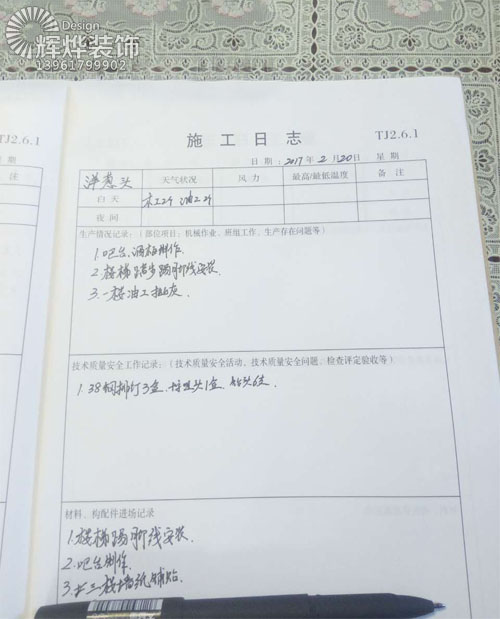 Design
辉烨装饰
13961799902
TJ2.6.1
施工日志
TJ2.6.1
星期
日期：2017年2月20日 星期
备注
洋葱头 天气状况 风力 最高/最低温度 备注
白天 木工2个 油工2个
夜间
生产情况记录：（部位项目；机械作业、班组工作、生产存在问题等）
1.吧台、酒柜制作
2.楼梯踏步踢脚线安装
3.一楼油工批灰
技术质量安全工作记录：（技术质量安全活动、技术质量安全问题、检查评定验收等）
1.38钢排钉3盒
材料、构配件进场记录
1.楼梯踢脚线安装.
2.吧台制作.
3.二三楼墙纸铺贴.